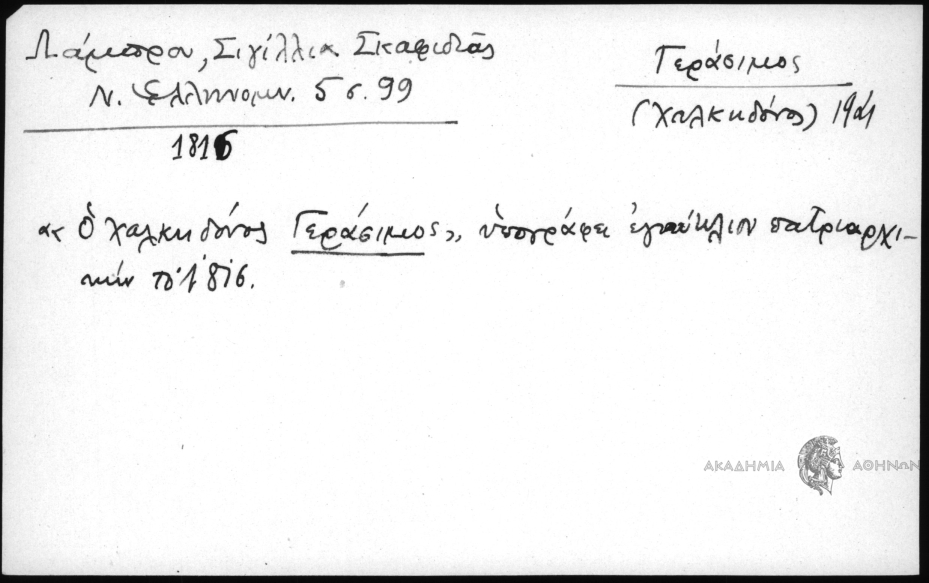 Λάμπρου, Σιγίλλια Σκαφιδιᾶς
Ν. Ἑλληνομν. 5 σ. 99
1816
Γεράσιμος
(Χαλκηδόνος) 19
« Ὁ Χαλκηδόνος Γεράσιμος», ὑπογράφει ἐγκύκλιον πατριαρχι-
κήν τῷ
ΑΚΑΔΗΜΙΑ ΑΘΗΝΩΝ